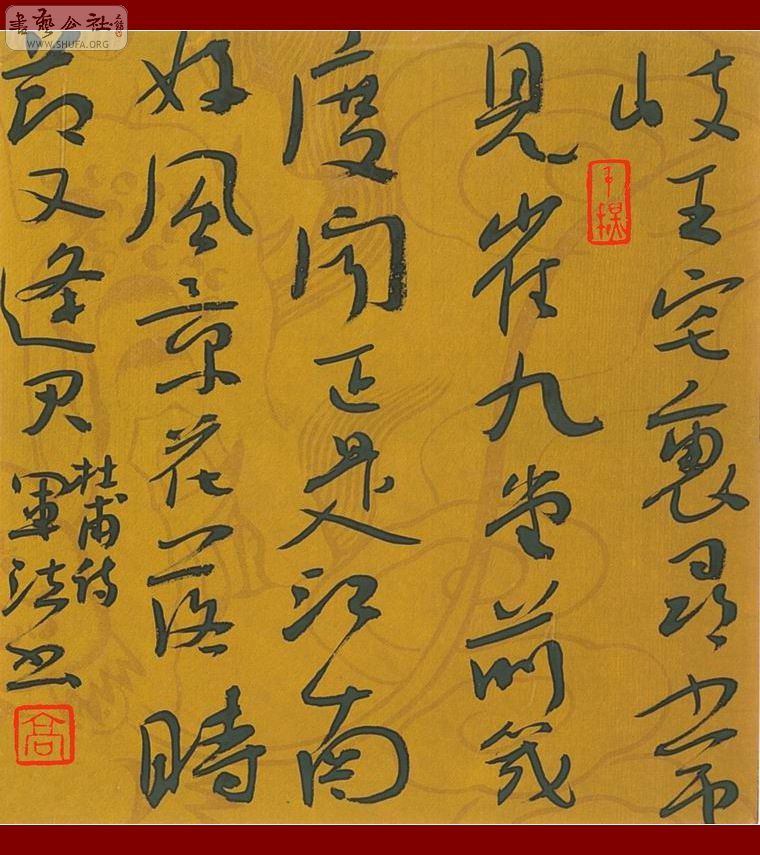 岐王宅裏尋常
見崔九堂前幾
度聞正是江南
好風景花落時
節又逢君
杜甫詩
軍法书
高
書藝公社
WWW.SHUFA.ORG